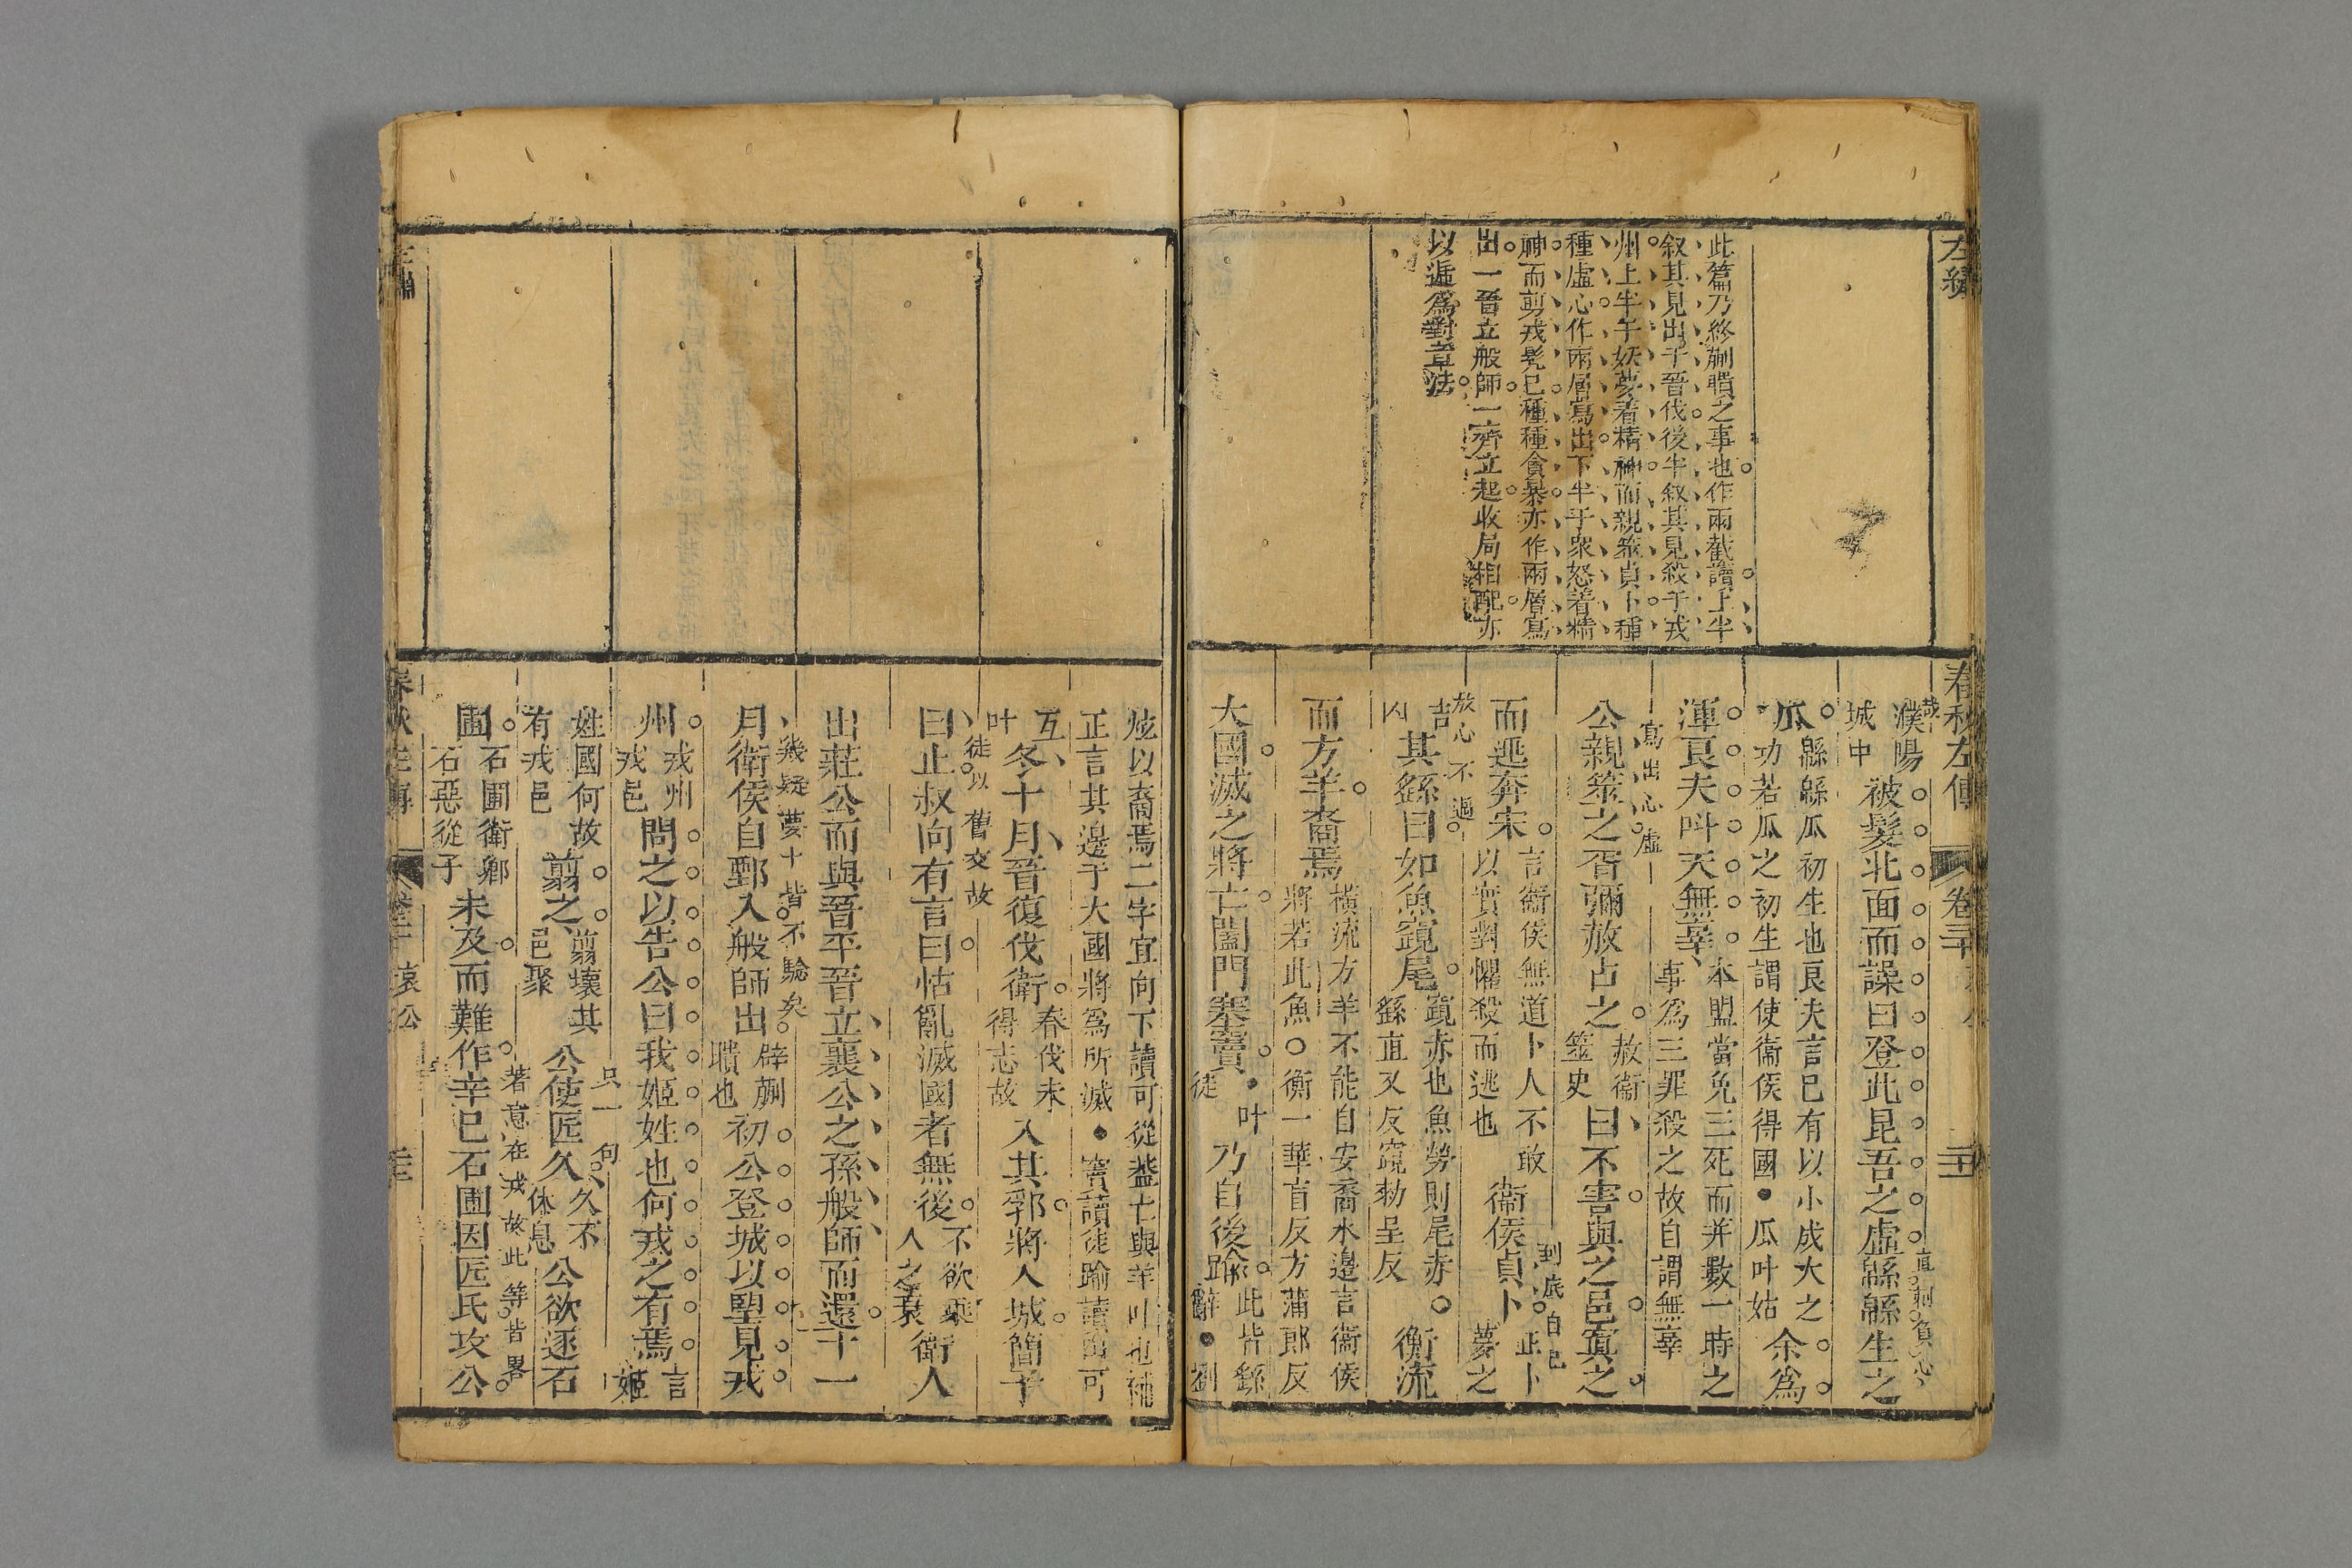 左繡
春秋左傳
此篇乃終蒯聵之事也作兩截讀上半
叙其見出于晉伐後半叙其見殺于戎
州上半于妖夢着精神而親筮貞卜種
種虛心作兩層寫出下半于衆怒着精
神而剪戎髡已種種貪暴亦作兩層寫
出一晉立般師一齊立起收局相配亦
以遞爲對章法
濮陽城中被髮北面而譟曰登此昆吾之虛緜緜生之
直刺負心
瓜緜緜瓜初生也良夫言已有以小成大之功若瓜之初生謂使衞侯得國●瓜叶姑余爲
渾良夫叫天無辜本盟當免三死而并數一時之事爲三罪殺之故自謂無辜
寫出心虛
公親筮之胥彌赦占之赦衞筮史曰不害與之邑寘之
而逃奔宋言衞侯無道卜人不敢以實對懼殺而逃也衞侯貞卜正卜夢之
到底自已
放心不過
吉凶其繇曰如魚竀尾竀赤也魚勞則尾赤○繇直又反竀勑呈反衡流
而方羊裔焉橫流方羊不能自安裔水邊言衞侯將若此魚○衡一華盲反方蒲郎反
大國滅之將亡闔門塞竇●叶徒乃自後踰此皆繇辭●劉
炫以裔焉二字宜向下讀可從蓋亡與羊叶也補
正言其邊于大國將爲所滅●竇讀徒踰讀由可
互叶冬十月晉復伐衛春伐未得志故入其郛將入城簡子
徒以舊交故
曰止叔向有言曰怙亂滅國者無後不欲乘人之衰衞人
出莊公而與晉平晉立襄公之孫般師而還十一
幾疑夢卜皆不驗矣
月衛侯自鄄入般師出辟蒯聵也初公登城以望見戎
州戎州戎邑問之以告公曰我姬姓也何戎之有焉言姬
姓國何故有戎邑翦之翦壞其邑聚公使匠久久不休息公欲逐石
只一句
著意在戎故此等皆畧
圃石圃衛卿石惡從子未及而難作辛巳石圃因匠氏攻公
哀公